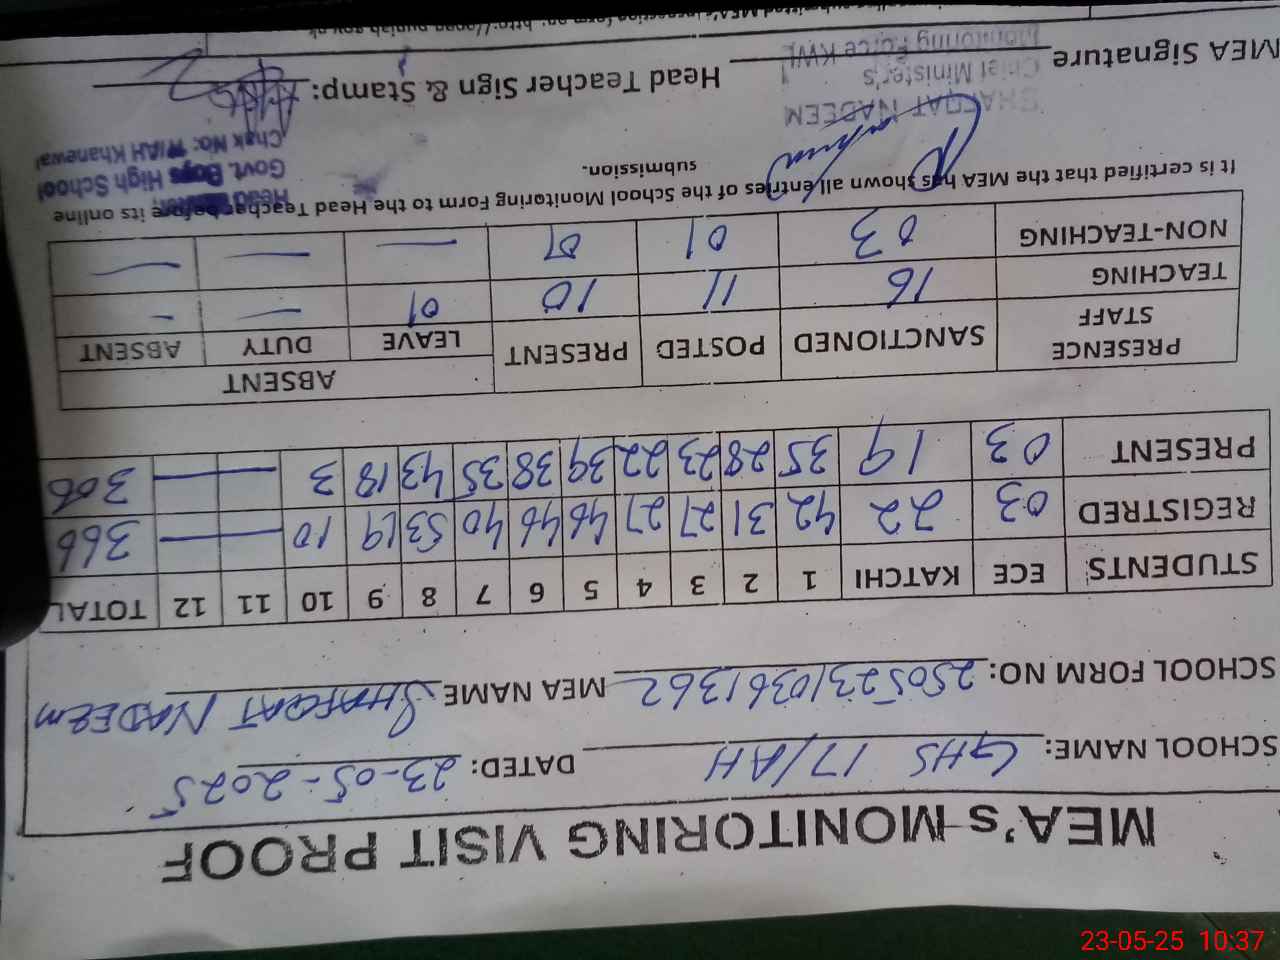 MEA's MONITORING VISIT PROOF
SCHOOL NAME: GHS 17/AH DATED: 23-05-2025
SCHOOL FORM NO: 2505231036 1362 MEA NAME SHAFQAT NADEEM
STUDENTS ECE KATCHI 1 2 3 4 5 6 7 8 9 10 11 12 TOTAL
REGISTRED 03 22 42 31 27 27 46 46 40 53 19 10 — — 366
PRESENT 03 19 35 28 23 22 39 38 35 43 18 3 — — 306
PRESENCE STAFF SANCTIONED POSTED PRESENT ABSENT
LEAVE DUTY ABSENT
TEACHING 16 11 10 01 — -
NON-TEACHING 03 01 01 — — —
It is certified that the MEA has shown all entries of the School Monitoring Form to the Head Teacher before its online
submission.
Head
Govt. Boys High School
Chak No: 17/AH Khanewal
SHAFQAT NADEEM
Chief Minister's
Monitoring Force KWL
MEA Signature Head Teacher Sign & Stamp:
23-05-25 10:37